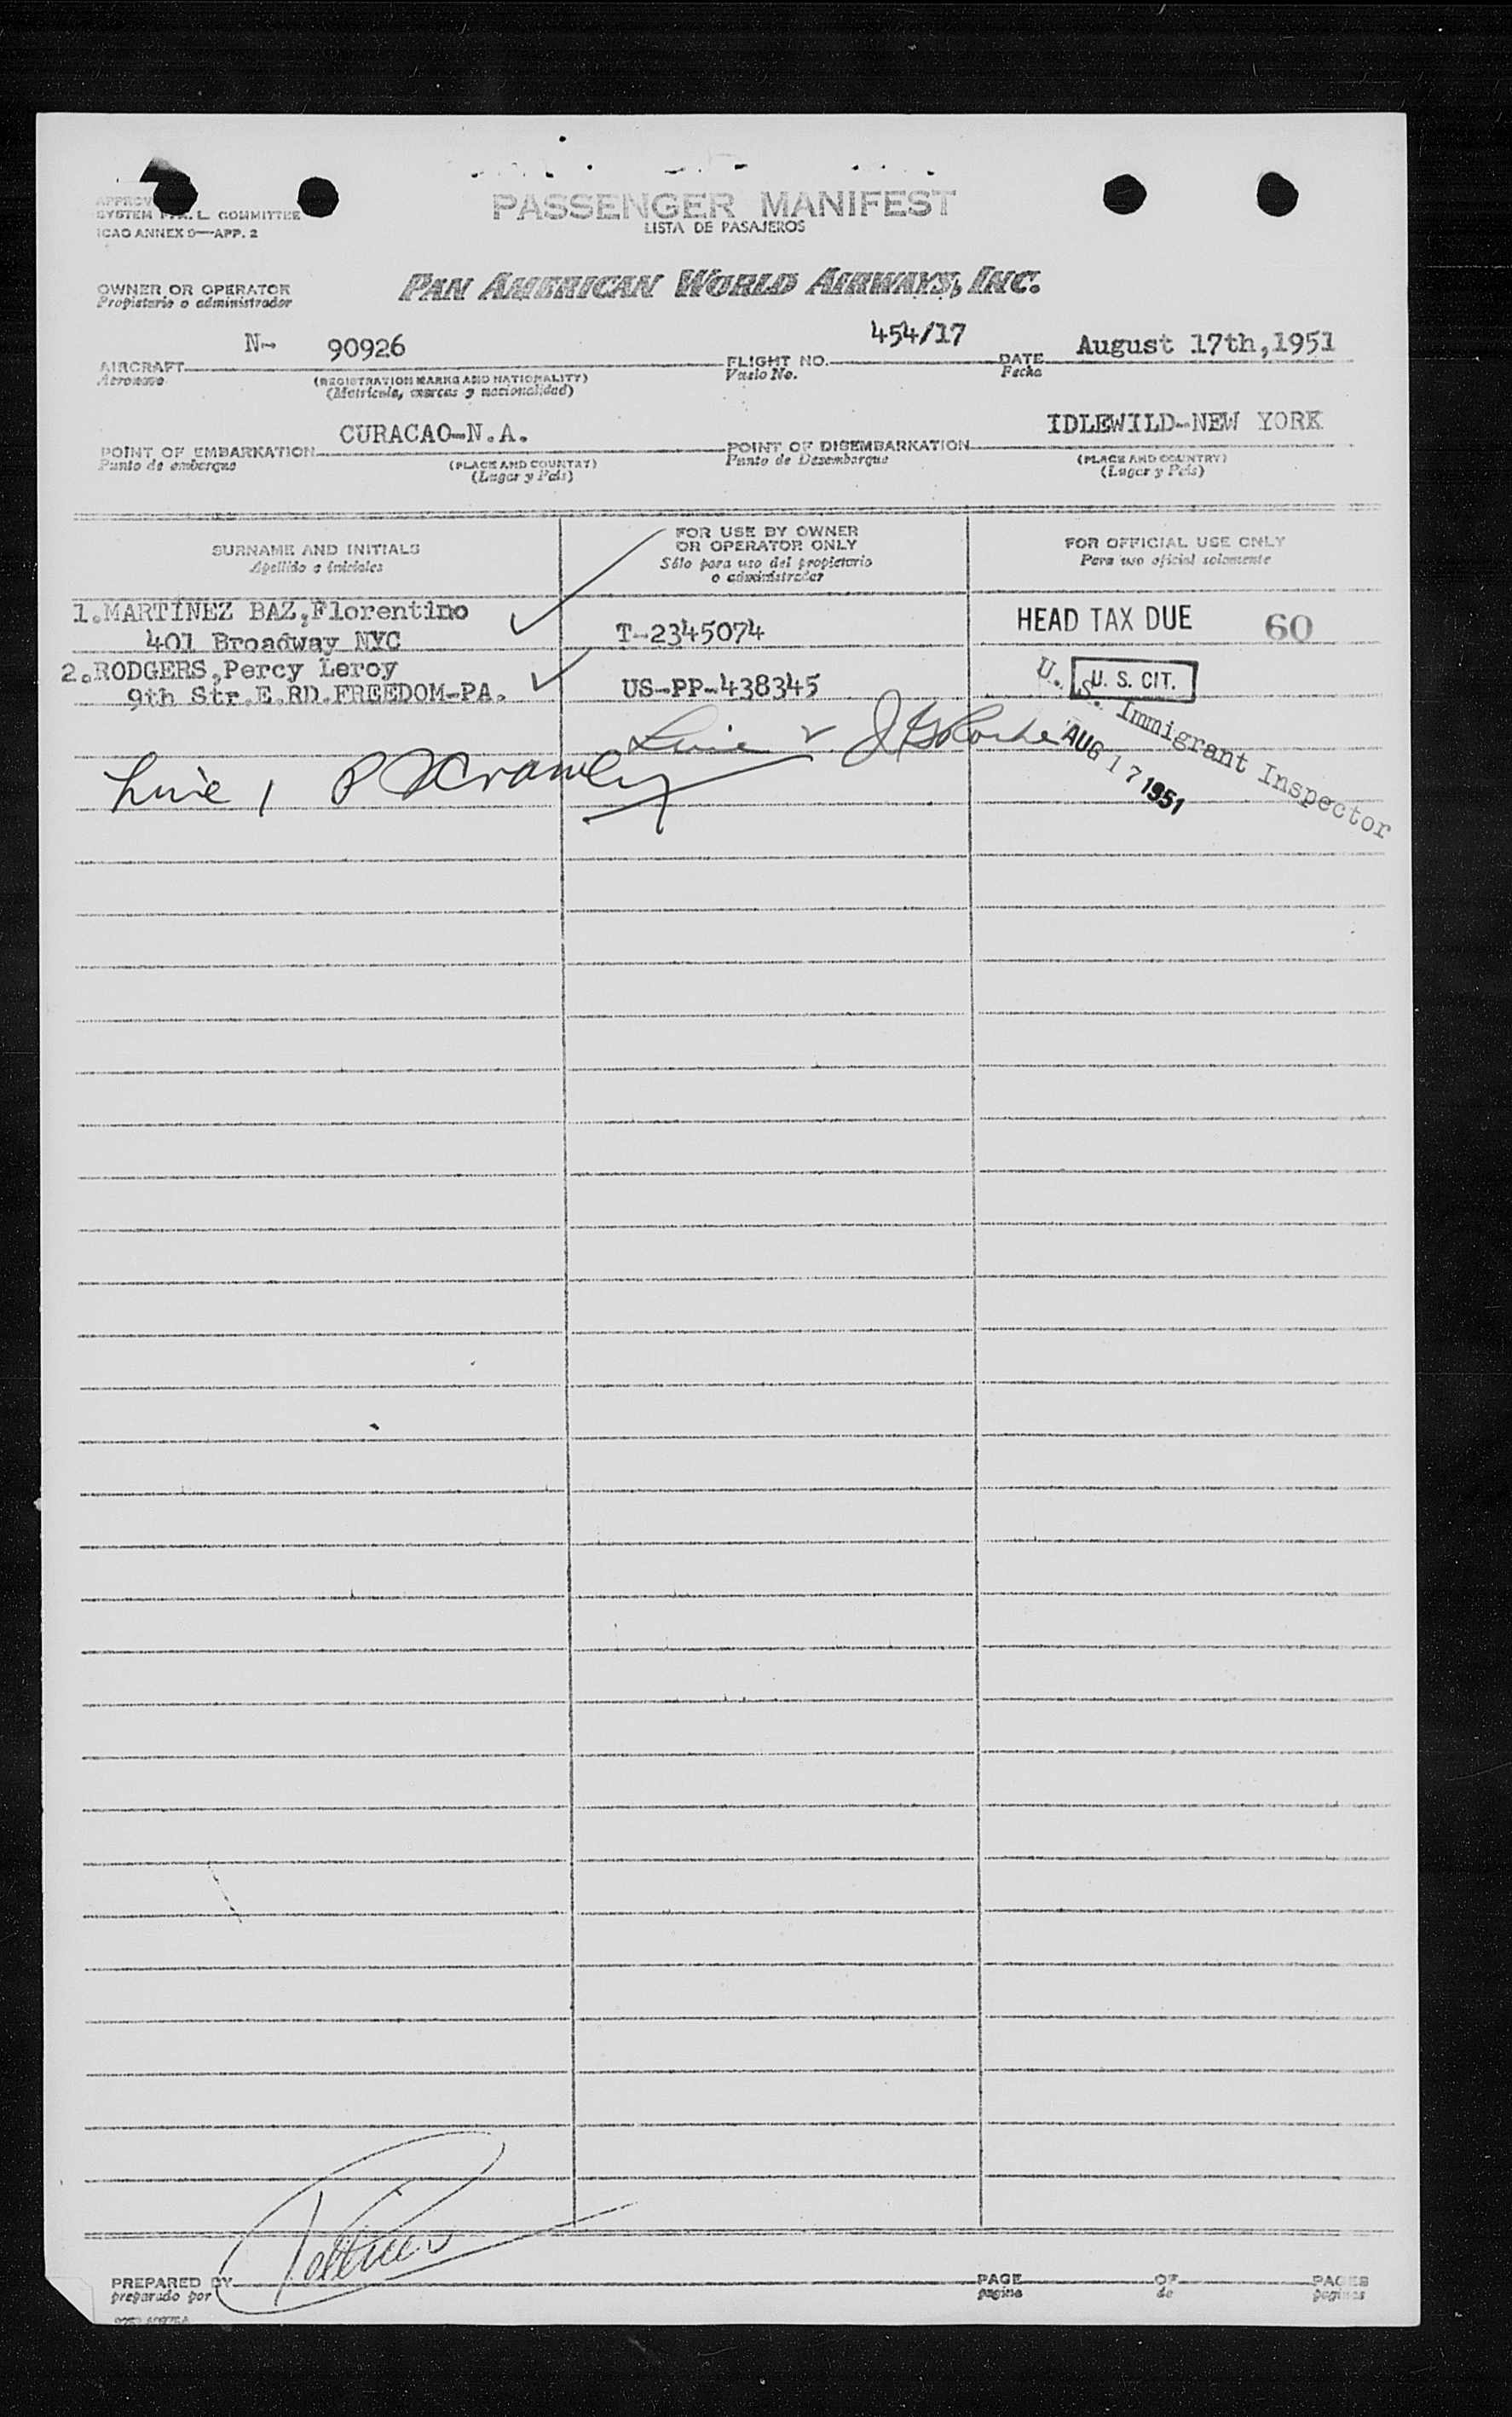 PASSENGER MANIFEST
LISTA DE PASAJEROS
SYSTEM L. COMMITTEE
ICAO ANNEX 9—APP. 2
OWNER OR OPERATOR
Propietario o administrador
PAN AMERICAN WORLD AIRWAYS, INC.
AIRCRAFT N- 90926 FLIGHT NO. 454/17 DATE August 17th,1951
Aeronave (REGISTRATION MARKS AND NATIONALITY) Vuelo No. Fecha
(Matricula, marcas y nacionalidad)
POINT OF EMBARKATION CURACAO-N.A. POINT OF DISEMBARKATION IDLEWILD-NEW YORK
Punto de embarque (PLACE AND COUNTRY) Punto de Desembarque (PLACE AND COUNTRY)
(Lugar y País) (Lugar y País)
SURNAME AND INITIALS
Apellido e iniciales
FOR USE BY OWNER
OR OPERATOR ONLY
Sólo para uso del propietario
o administrador
FOR OFFICIAL USE ONLY
Para uso oficial solamente
1.MARTINEZ BAZ,Florentino
401 Broadway NYC T-2345074 HEAD TAX DUE 60
2.RODGERS,Percy Leroy
9th Str.E.RD.FREEDOM-PA. US-PP-438345 U. S. CIT.
U. S. Immigrant Inspector
AUG 17 1951
Line 2
Line 1
PREPARED BY PAGE OF PAGES
preparado por pagina de paginas